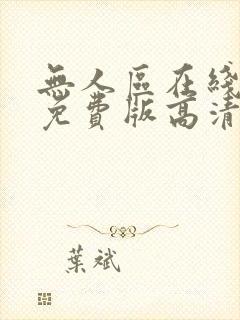 無人區在綫
免費版高清
葉斌